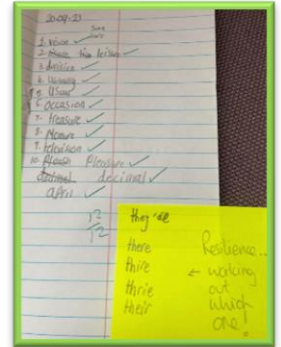 20.09.23
1. vision
2. leisure
3. division
4. usually
5. usual
6. occasion
7. treasure
8. measure
9. television
10. Pleasure
decimal
april
12
12
there
thire
thrie
their
Resilience...
← working
out
which
one!